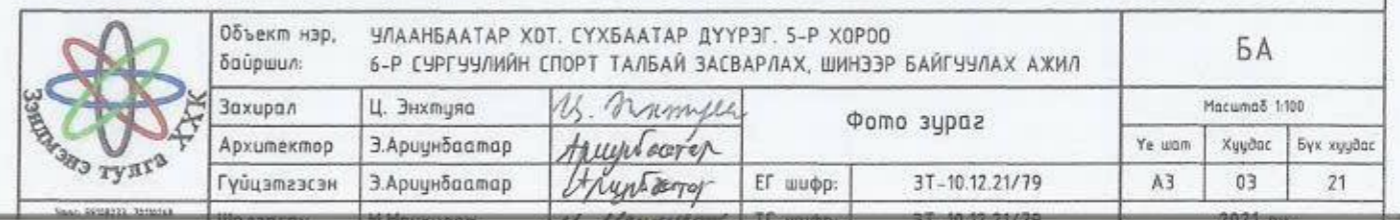 Объект нэр, УЛААНБААТАР ХОТ. СҮХБААТАР ДҮҮРЭГ. 5-Р ХОРОО
байршил: 6-Р СУРГУУЛИЙН СПОРТ ТАЛБАЙ ЗАСВАРЛАХ, ШИНЭЭР БАЙГУУЛАХ АЖИЛ
БА
Захирал Ц. Энхтуяа Ц. Энхтуяа Фото зураг Масштаб 1:100
Архитектор Э.Ариунбаатар Ариунбаатар Үе шат Хуудас Бүх хуудас
Гүйцэтгэсэн Э.Ариунбаатар Ариунбаатар ЕГ шифр: ЗТ-10.12.21/79 А3 03 21
Зэндмэнэ тулга ХХК